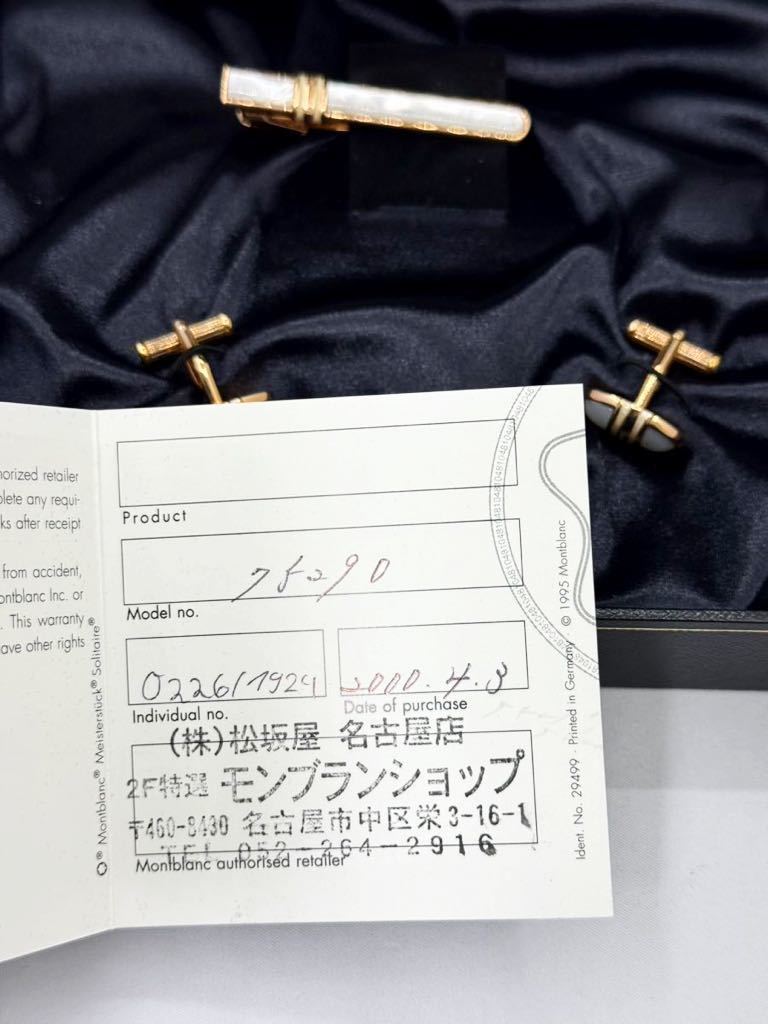 horized retailer
plete any requi-
ks after receipt
from accident,
ontblanc Inc. or
. This warranty
ave other rights
® Montblanc® Meisterstück® Solitaire®
Product
75290
Model no.
0226/1924
Individual no.
2000.4.3
Date of purchase
(株)松坂屋 名古屋店
2F特選 モンブランショップ
〒460-8430 名古屋市中区栄3-16-1
TEL 052-264-2916
Montblanc authorised retailer
Ident. No. 29499 · Printed in Germany · © 1995 Montblanc